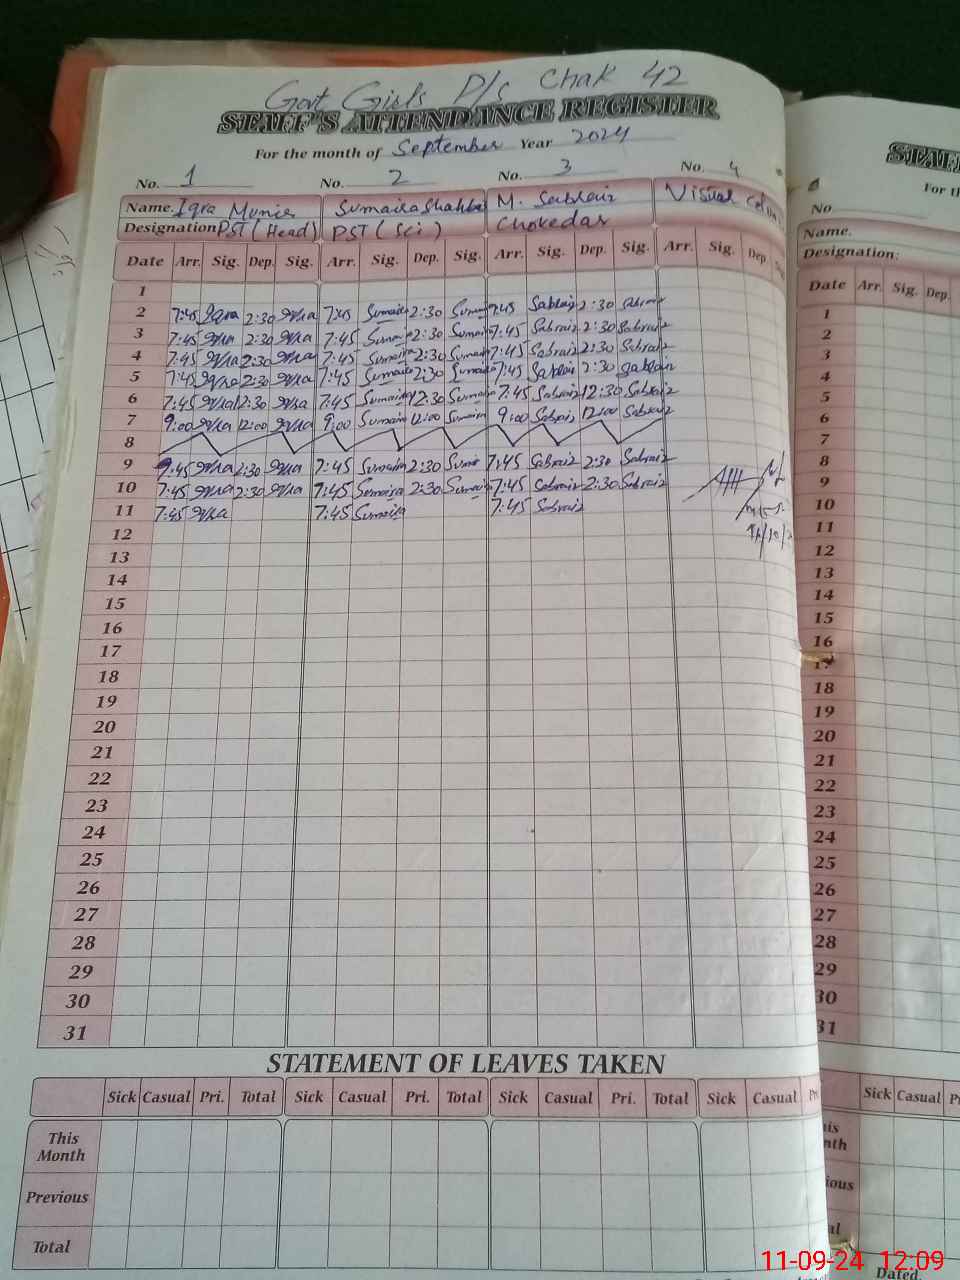 Govt Girls P/s Chak 42
STAFF'S ATTENDANCE REGISTER
For the month of September Year 2024
No. 1 No. 2 No. 3 No. 4
Name. Iqra Munir Sumaira Shahba M. Sabrair Visual
Designation PST (Head) PST (Sci) Chokedar
Date Arr. Sig. Dep. Sig. Arr. Sig. Dep. Sig. Arr. Sig. Dep. Sig. Arr. Sig. Dep
1
2 7:45 Iqra 2:30 Iqra 7:45 Sumaira 2:30 7:45 Sabraiz 2:30
3 7:45 Iqra 2:30 Iqra 7:45 2:30 7:45 Sabraiz 2:30 Sabraiz
4 7:45 Iqra 2:30 Iqra 7:45 Sumaira 2:30 Sumaira 7:45 Sabraiz 2:30 Sabraiz
5 7:45 Iqra 2:30 Iqra 7:45 Sumaira 2:30 Sumaira 7:45 Sabraiz 2:30 Sabraiz
6 7:45 Iqra 12:30 Iqra 7:45 Sumaira 12:30 Sumaira 7:45 Sabraiz 12:30 Sabraiz
7 9:00 Iqra 12:00 Iqra 9:00 Sumaira 12:00 Sumaira 9:00 Sabraiz 12:00 Sabraiz
8
9 7:45 Iqra 2:30 Iqra 7:45 Sumaira 2:30 7:45 Sabraiz 2:30 Sabraiz
10 7:45 Iqra 2:30 Iqra 7:45 Sumaira 2:30 Sumaira 7:45 Sabraiz 2:30 Sabraiz
11 7:45 Iqra 7:45 Sumaira 7:45 Sabraiz
12
13
14
15
16
17
18
19
20
21
22
23
24
25
26
27
28
29
30
31
STATEMENT OF LEAVES TAKEN
Sick Casual Pri. Total Sick Casual Pri. Total Sick Casual Pri. Total Sick Casual
This
Month
Previous
Total
No
Name.
Designation:
Date Arr. Sig. Dep.
1
2
3
4
5
6
7
8
9
10
11
12
13
14
15
16
17
18
19
20
21
22
23
24
25
26
27
28
29
30
31
Sick Casual
Dated.
11-09-24 12:09